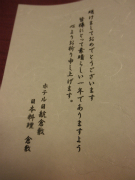 明けましておめでとうございます
皆様にとって素晴らしい一年でありますよう
心よりお祈り申し上げます。
ホテル日航倉敷
日本料理 倉敷